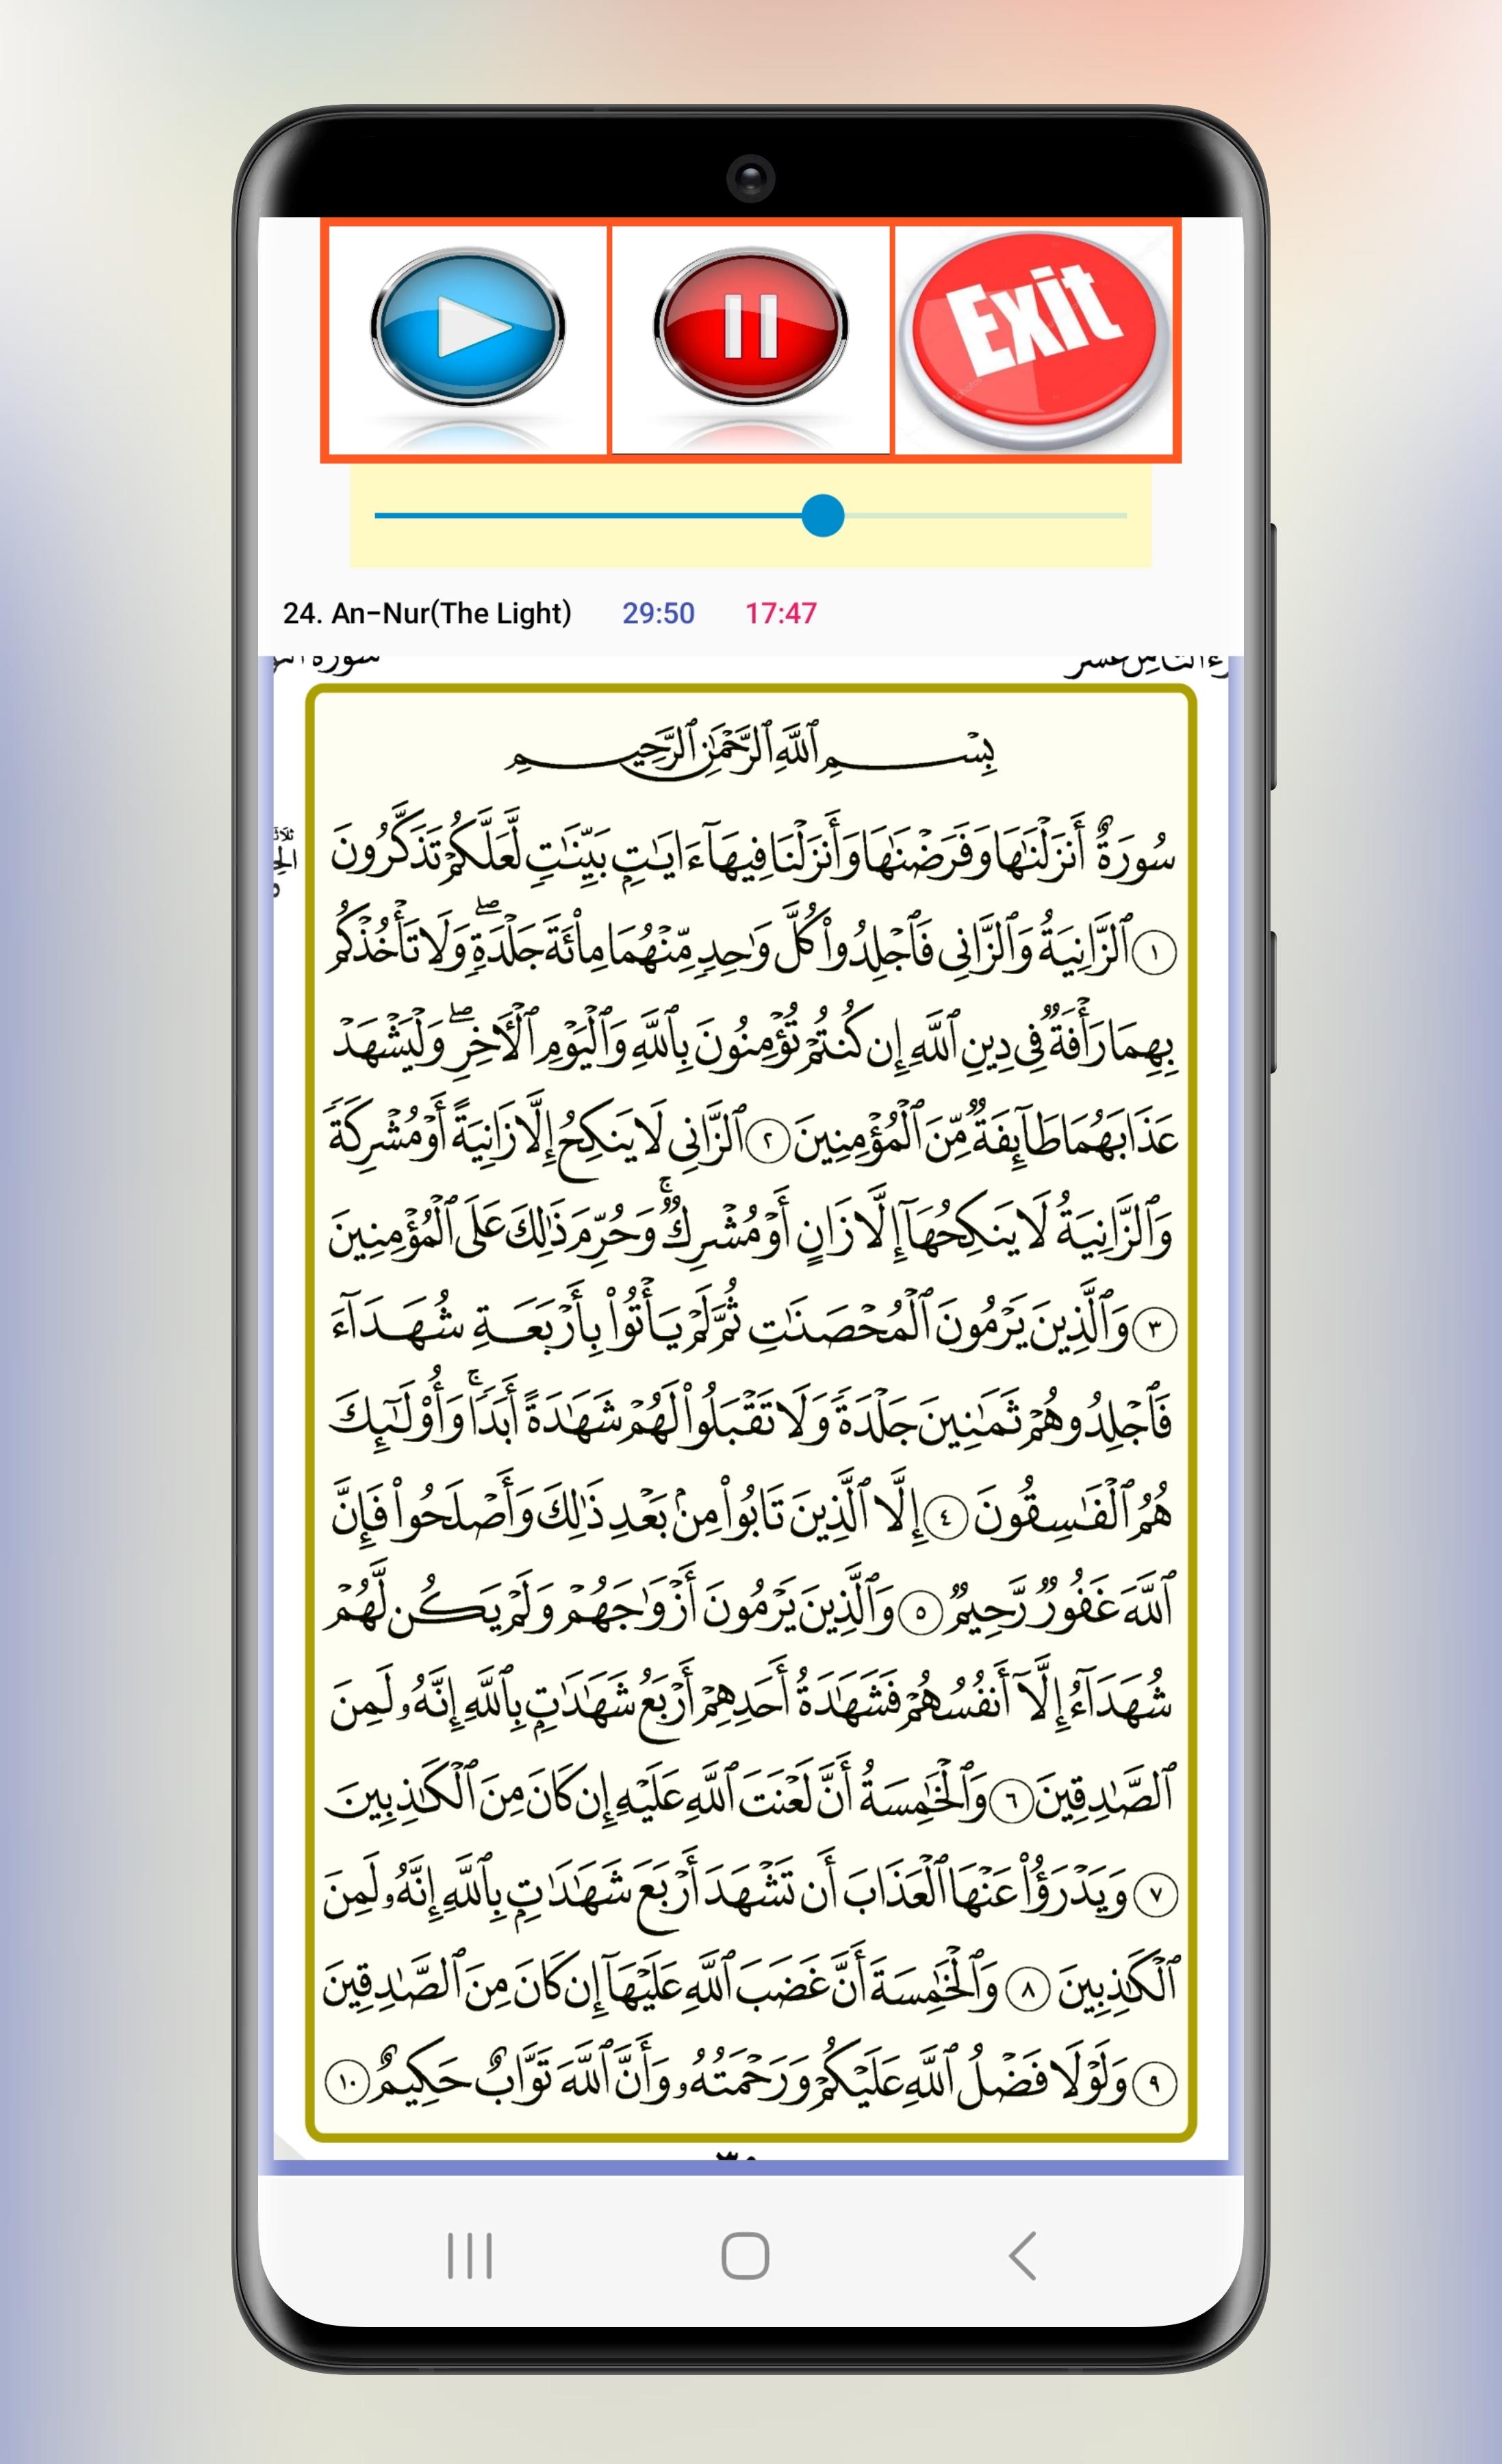 Exit
24. An-Nur(The Light) 29:50 17:47
بِسْمِ ٱللَّهِ ٱلرَّحْمَٰنِ ٱلرَّحِيمِ
سُورَةٌ أَنزَلْنَٰهَا وَفَرَضْنَٰهَا وَأَنزَلْنَا فِيهَآ ءَايَٰتٍۭ بَيِّنَٰتٍ لَّعَلَّكُمْ تَذَكَّرُونَ
١ ٱلزَّانِيَةُ وَٱلزَّانِى فَٱجْلِدُوا۟ كُلَّ وَٰحِدٍ مِّنْهُمَا مِا۟ئَةَ جَلْدَةٍ ۖ وَلَا تَأْخُذْكُم
بِهِمَا رَأْفَةٌ فِى دِينِ ٱللَّهِ إِن كُنتُمْ تُؤْمِنُونَ بِٱللَّهِ وَٱلْيَوْمِ ٱلْـَٔاخِرِ ۖ وَلْيَشْهَدْ
عَذَابَهُمَا طَآئِفَةٌ مِّنَ ٱلْمُؤْمِنِينَ ٢ ٱلزَّانِى لَا يَنكِحُ إِلَّا زَانِيَةً أَوْ مُشْرِكَةً
وَٱلزَّانِيَةُ لَا يَنكِحُهَآ إِلَّا زَانٍ أَوْ مُشْرِكٌ ۚ وَحُرِّمَ ذَٰلِكَ عَلَى ٱلْمُؤْمِنِينَ
٣ وَٱلَّذِينَ يَرْمُونَ ٱلْمُحْصَنَٰتِ ثُمَّ لَمْ يَأْتُوا۟ بِأَرْبَعَةِ شُهَدَآءَ
فَٱجْلِدُوهُمْ ثَمَٰنِينَ جَلْدَةً وَلَا تَقْبَلُوا۟ لَهُمْ شَهَٰدَةً أَبَدًا ۚ وَأُو۟لَٰٓئِكَ
هُمُ ٱلْفَٰسِقُونَ ٤ إِلَّا ٱلَّذِينَ تَابُوا۟ مِنۢ بَعْدِ ذَٰلِكَ وَأَصْلَحُوا۟ فَإِنَّ
ٱللَّهَ غَفُورٌ رَّحِيمٌ ٥ وَٱلَّذِينَ يَرْمُونَ أَزْوَٰجَهُمْ وَلَمْ يَكُن لَّهُمْ
شُهَدَآءُ إِلَّآ أَنفُسُهُمْ فَشَهَٰدَةُ أَحَدِهِمْ أَرْبَعُ شَهَٰدَٰتٍۭ بِٱللَّهِ إِنَّهُۥ لَمِنَ
ٱلصَّٰدِقِينَ ٦ وَٱلْخَٰمِسَةُ أَنَّ لَعْنَتَ ٱللَّهِ عَلَيْهِ إِن كَانَ مِنَ ٱلْكَٰذِبِينَ
٧ وَيَدْرَؤُا۟ عَنْهَا ٱلْعَذَابَ أَن تَشْهَدَ أَرْبَعَ شَهَٰدَٰتٍۭ بِٱللَّهِ إِنَّهُۥ لَمِنَ
ٱلْكَٰذِبِينَ ٨ وَٱلْخَٰمِسَةَ أَنَّ غَضَبَ ٱللَّهِ عَلَيْهَآ إِن كَانَ مِنَ ٱلصَّٰدِقِينَ
٩ وَلَوْلَا فَضْلُ ٱللَّهِ عَلَيْكُمْ وَرَحْمَتُهُۥ وَأَنَّ ٱللَّهَ تَوَّابٌ حَكِيمٌ ١٠